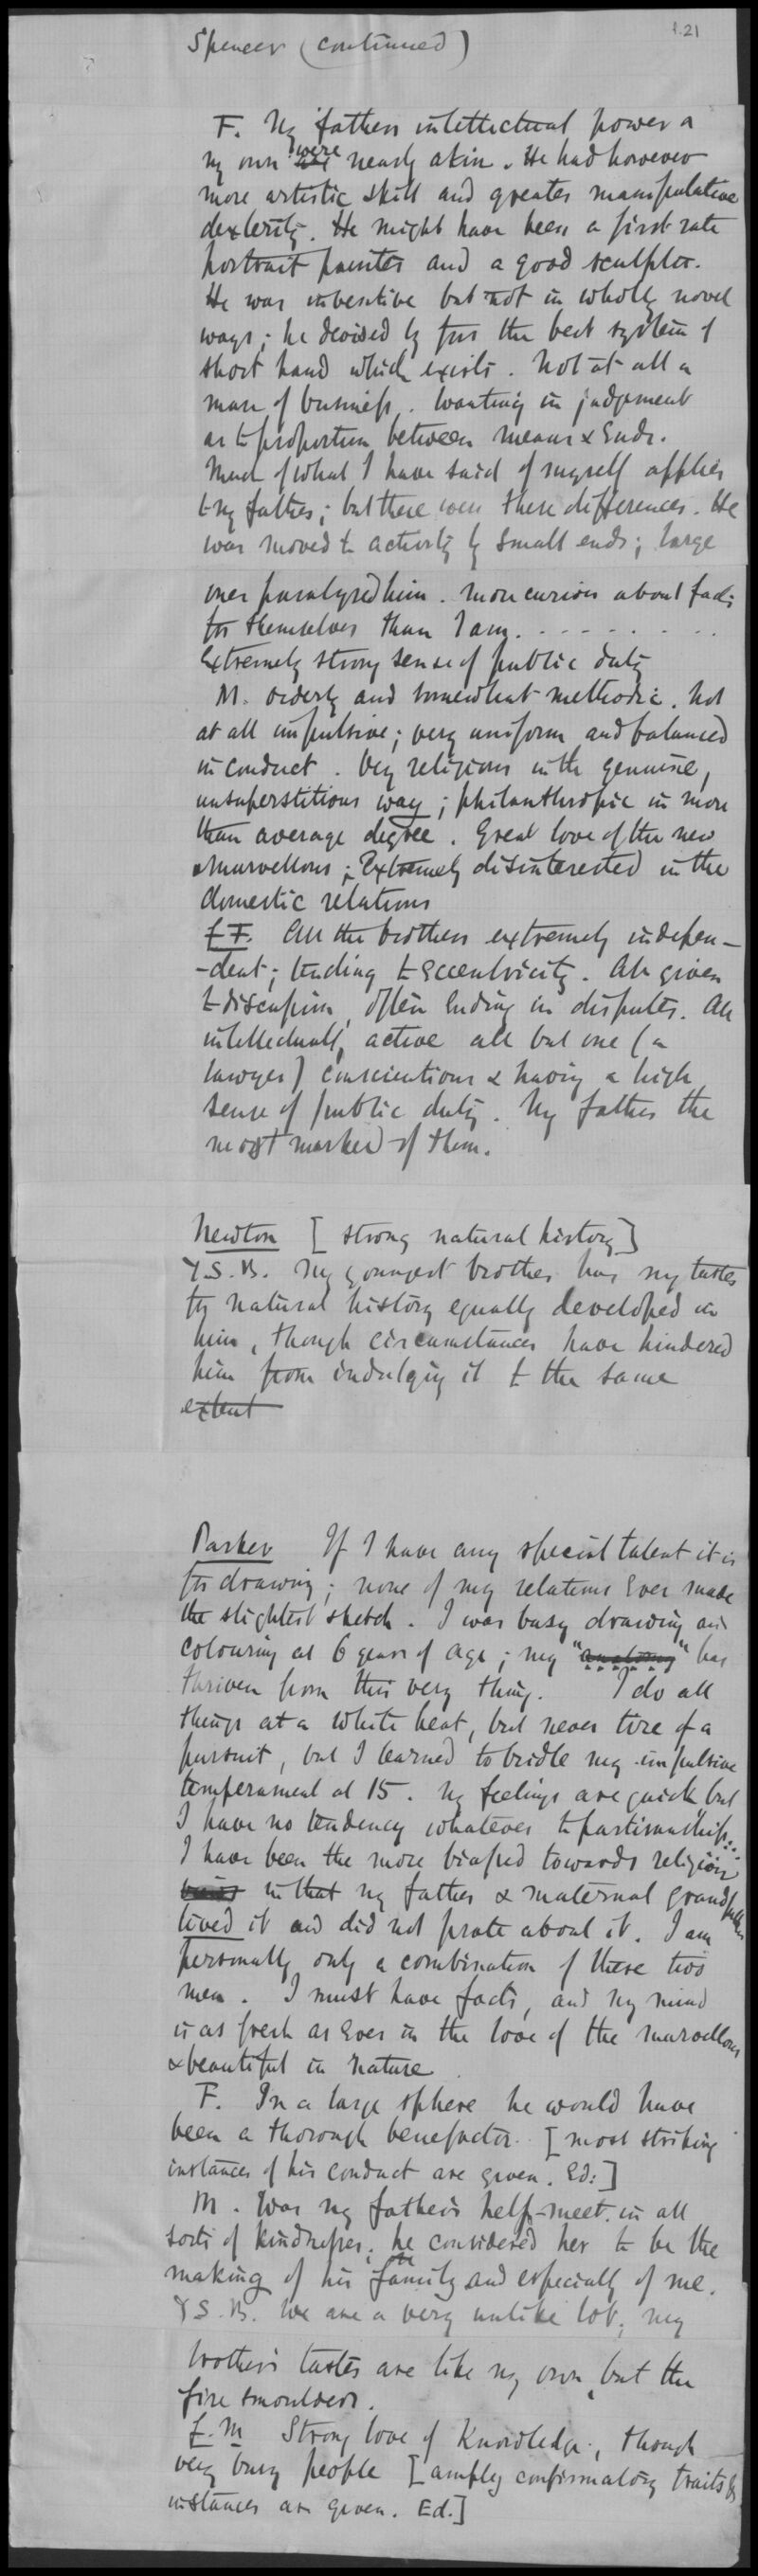 1.21
Spencer (continued)
F. My father's intellectual power &
my own were nearly akin. He had however
more artistic skill and greater manipulative
dexterity. He might have been a first rate
portrait painter and a good sculptor.
He was inventive but not in wholly novel
ways; he devised by far the best system of
short hand which exists. Not at all a
man of business. Wanting in judgement
as to proportion between means & ends.
Much of what I have said of myself applies
to my father; but there were these differences. He
was moved to activity by small ends; large
ones paralysed him. More curious about facts
for themselves than I am. . . . . . . . .
Extremely strong sense of public duty
M. orderly and somewhat methodic. Not
at all impulsive; very uniform and balanced
in conduct. Very religious in the genuine,
unsuperstitious way; philanthropic in more
than average degree. Great love of the new
& marvellous; Extremely disinterested in the
domestic relations
f F. All the brothers extremely indepen-
-dent; tending to eccentricity. All given
to discussion, often ending in disputes. All
intellectually active all but one (a
lawyer) conscientious & having a high
sense of public duty. My father the
most marked of them.
Newton [strong natural history]
Y.S.B. My youngest brother has my tastes
for natural history equally developed in
him, though circumstances have hindered
him from indulging it to the same
extent
Parker If I have any special talent it is
for drawing; none of my relations ever made
the slightest sketch. I was busy drawing and
colouring at 6 years of age; my "anatomy" has
thriven from this very thing. I do all
things at a white heat, but never tire of a
pursuit, but I learned to bridle my impulsive
temperament at 15. My feelings are quick but
I have no tendency whatever to partisanship...
I have been the more biassed towards religion
in that my father & maternal grandfather
lived it and did not prate about it. I am
personally only a combination of these two
men. I must have facts, and my mind
is as fresh as ever in the love of the marvellous
& beautiful in nature
F. In a large sphere he would have
been a thorough benefactor. [most striking
instances of his conduct are given. Ed:]
M. Was my father's help-meet in all
sorts of kindnesses; he considered her to be the
making of his family and especially of me.
Y S.B. We are a very unlike lot; my
brother's tastes are like my own, but the
fire smoulders.
f. M Strong love of Knowledge, though
very busy people [amply confirmatory traits &
instances are given. Ed.]